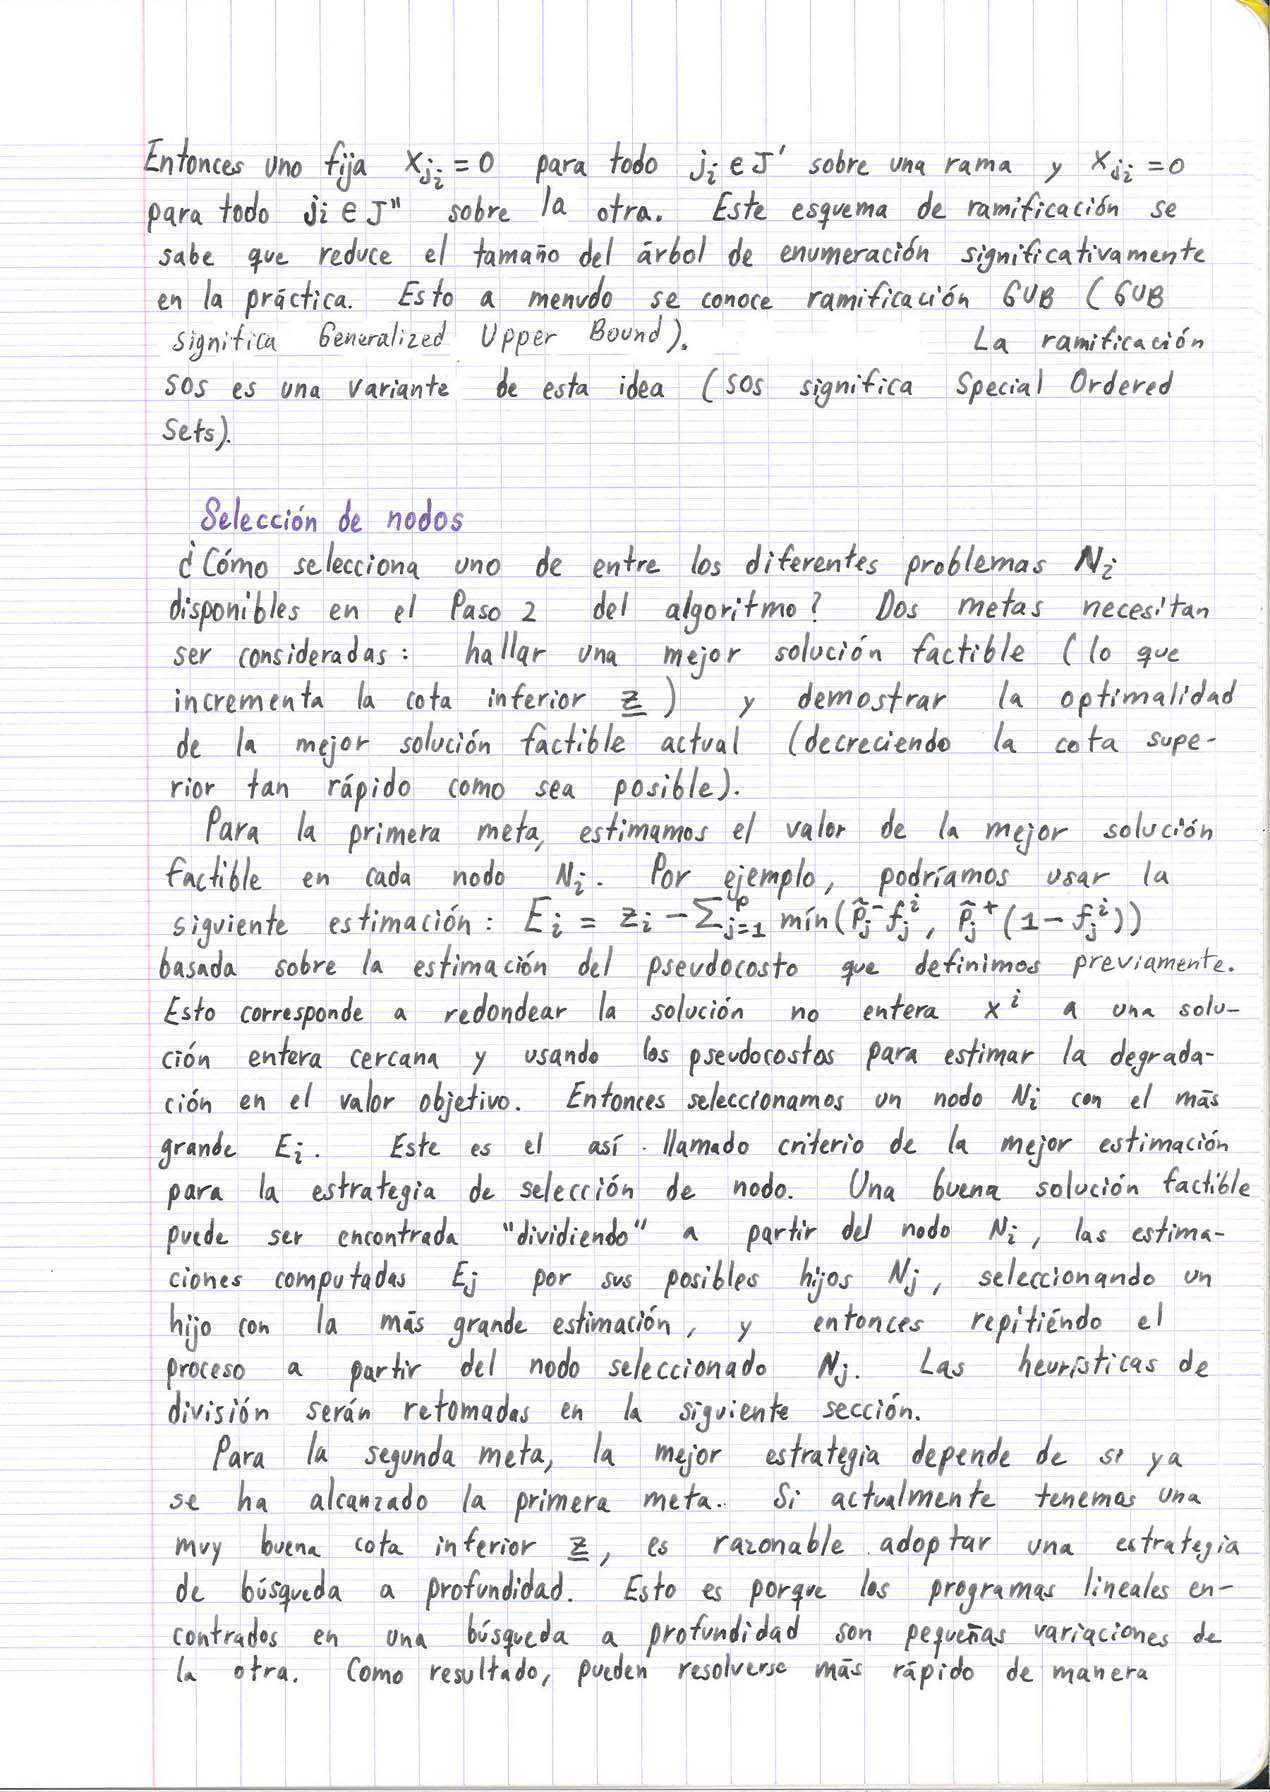 Entonces uno fija x_{j_i} = 0 para todo j_i ∈ J' sobre una rama y x_{j_i} = 0
para todo j_i ∈ J" sobre la otra. Este esquema de ramificación se
sabe que reduce el tamaño del árbol de enumeración significativamente
en la práctica. Esto a menudo se conoce ramificación GUB (GUB
significa Generalized Upper Bound). La ramificación
SOS es una variante de esta idea (SOS significa Special Ordered
Sets).
Selección de nodos
¿Cómo selecciona uno de entre los diferentes problemas N_i
disponibles en el Paso 2 del algoritmo? Dos metas necesitan
ser consideradas: hallar una mejor solución factible (lo que
incrementa la cota inferior z̲) y demostrar la optimalidad
de la mejor solución factible actual (decreciendo la cota supe-
rior tan rápido como sea posible).
Para la primera meta, estimamos el valor de la mejor solución
factible en cada nodo N_i. Por ejemplo, podríamos usar la
siguiente estimación: E_i = z_i − Σ_{j=1}^{p} mín(P̂_j^- f_j^i, P̂_j^+ (1 − f_j^i))
basada sobre la estimación del pseudocosto que definimos previamente.
Esto corresponde a redondear la solución no entera x^i a una solu-
ción entera cercana y usando los pseudocostos para estimar la degrada-
ción en el valor objetivo. Entonces seleccionamos un nodo N_i con el más
grande E_i. Este es el así llamado criterio de la mejor estimación
para la estrategia de selección de nodo. Una buena solución factible
puede ser encontrada "dividiendo" a partir del nodo N_i, las estima-
ciones computadas E_j por sus posibles hijos N_j, seleccionando un
hijo con la más grande estimación, y entonces repitiéndo el
proceso a partir del nodo seleccionado N_j. Las heurísticas de
división serán retomadas en la siguiente sección.
Para la segunda meta, la mejor estrategia depende de si ya
se ha alcanzado la primera meta. Si actualmente tenemos una
muy buena cota inferior z̲, es razonable adoptar una estrategia
de búsqueda a profundidad. Esto es porque los programas lineales en-
contrados en una búsqueda a profundidad son pequeñas variaciones de
la otra. Como resultado, pueden resolverse más rápido de manera